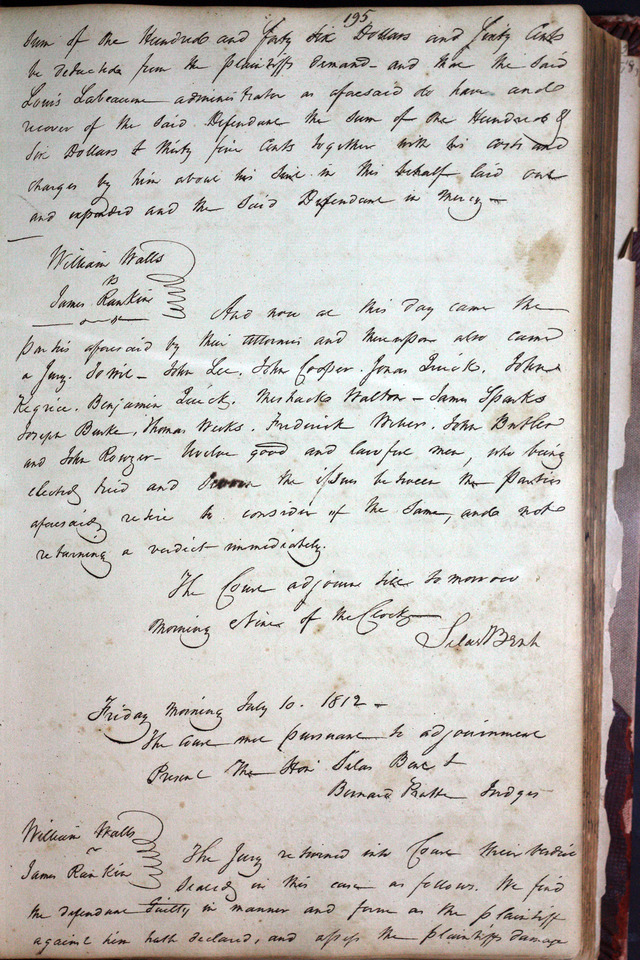 195
Sum of One Hundred and forty Six Dollars and Sixty Cents
be deducted from the plaintiffs demand and that the Said
Louis Labeaume administrator as aforesaid do have and
recover of the Said Defendant the Sum of One Hundred &
Six Dollars & thirty five Cents together with his costs and
charges by him about his Suit in this behalf laid out
and expended and the Said Defendant in Mercy —
William Watts
vs
James Rankin
And now at this day came the
parties aforesaid by their attornies and thereupon also came
a Jury. To wit — John Lee. John Cooper. Jonas Quick. John
Benjamin Quick. Meshack Walton — James Sparks
Joseph Burke, Thomas Weeks. Frederick John Butler
and John Rowzer — twelve good and lawful men, who being
elected tried and Sworn the issues between the parties
aforesaid, retire to consider of the Same, and not
returning a verdict immediately.
The Court adjourns till tomorrow
Morning Nine of the Clock
Silas Bent
Friday Morning July 10. 1812 —
The Court met pursuant to adjournment
Present The Hon Silas Bent &
Bernard Pratte Judges
William Watts
v
James Rankin
The Jury returned into Court their verdict
Sealed in this case as follows. We find
the defendant Guilty, in manner and form as the plaintiff
against him hath declared, and assess the plaintiffs damage